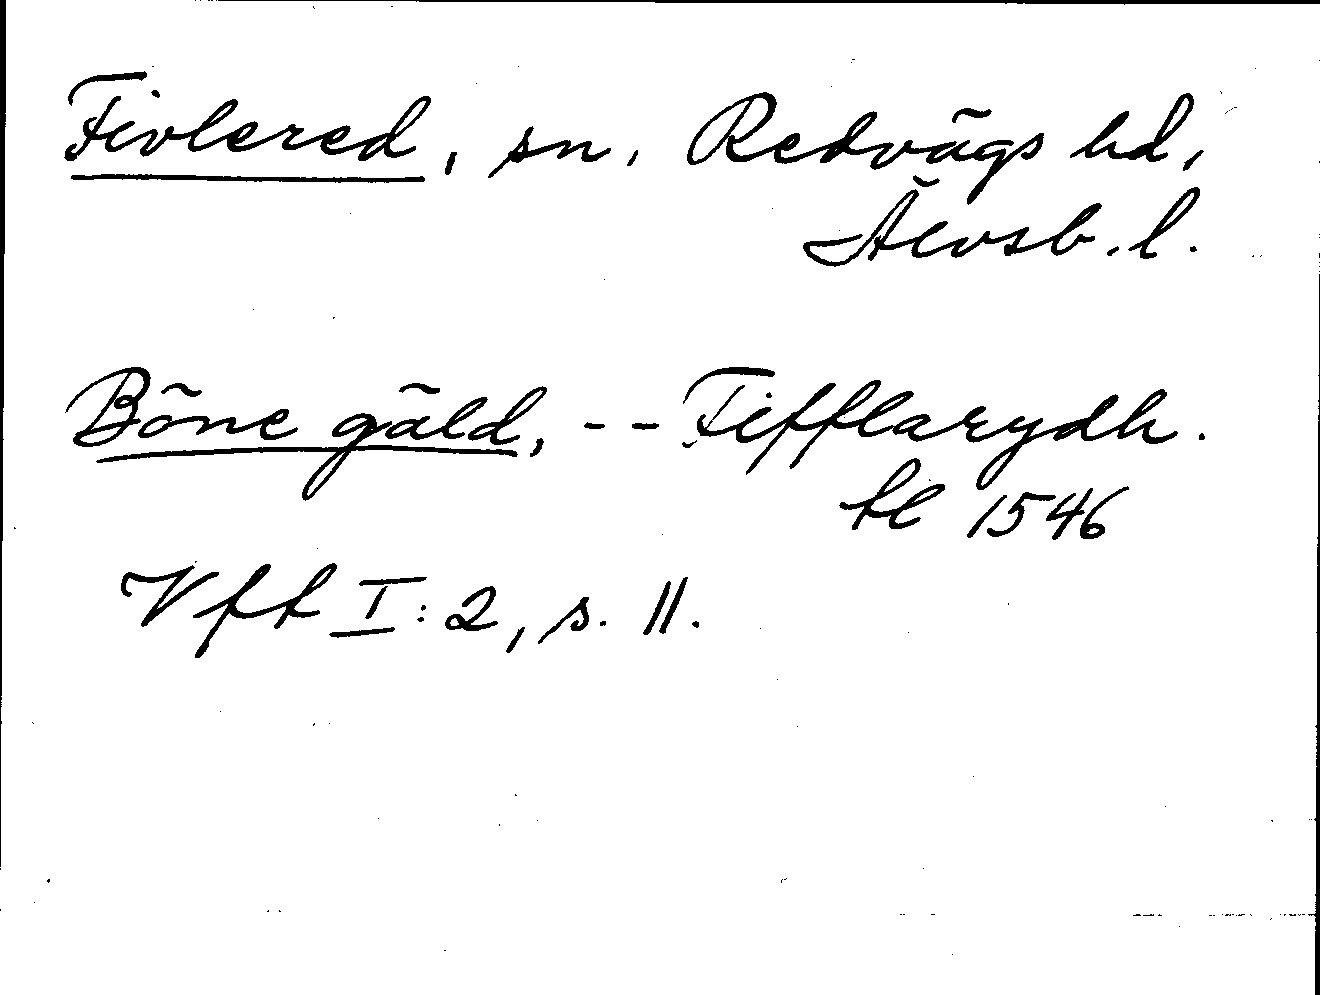 Fivlered, sn, Redvägs hd,
Älvsb. l.
Böne gäld, -- Fifflarydh.
fl 1546
Vft I:2, s. 11.